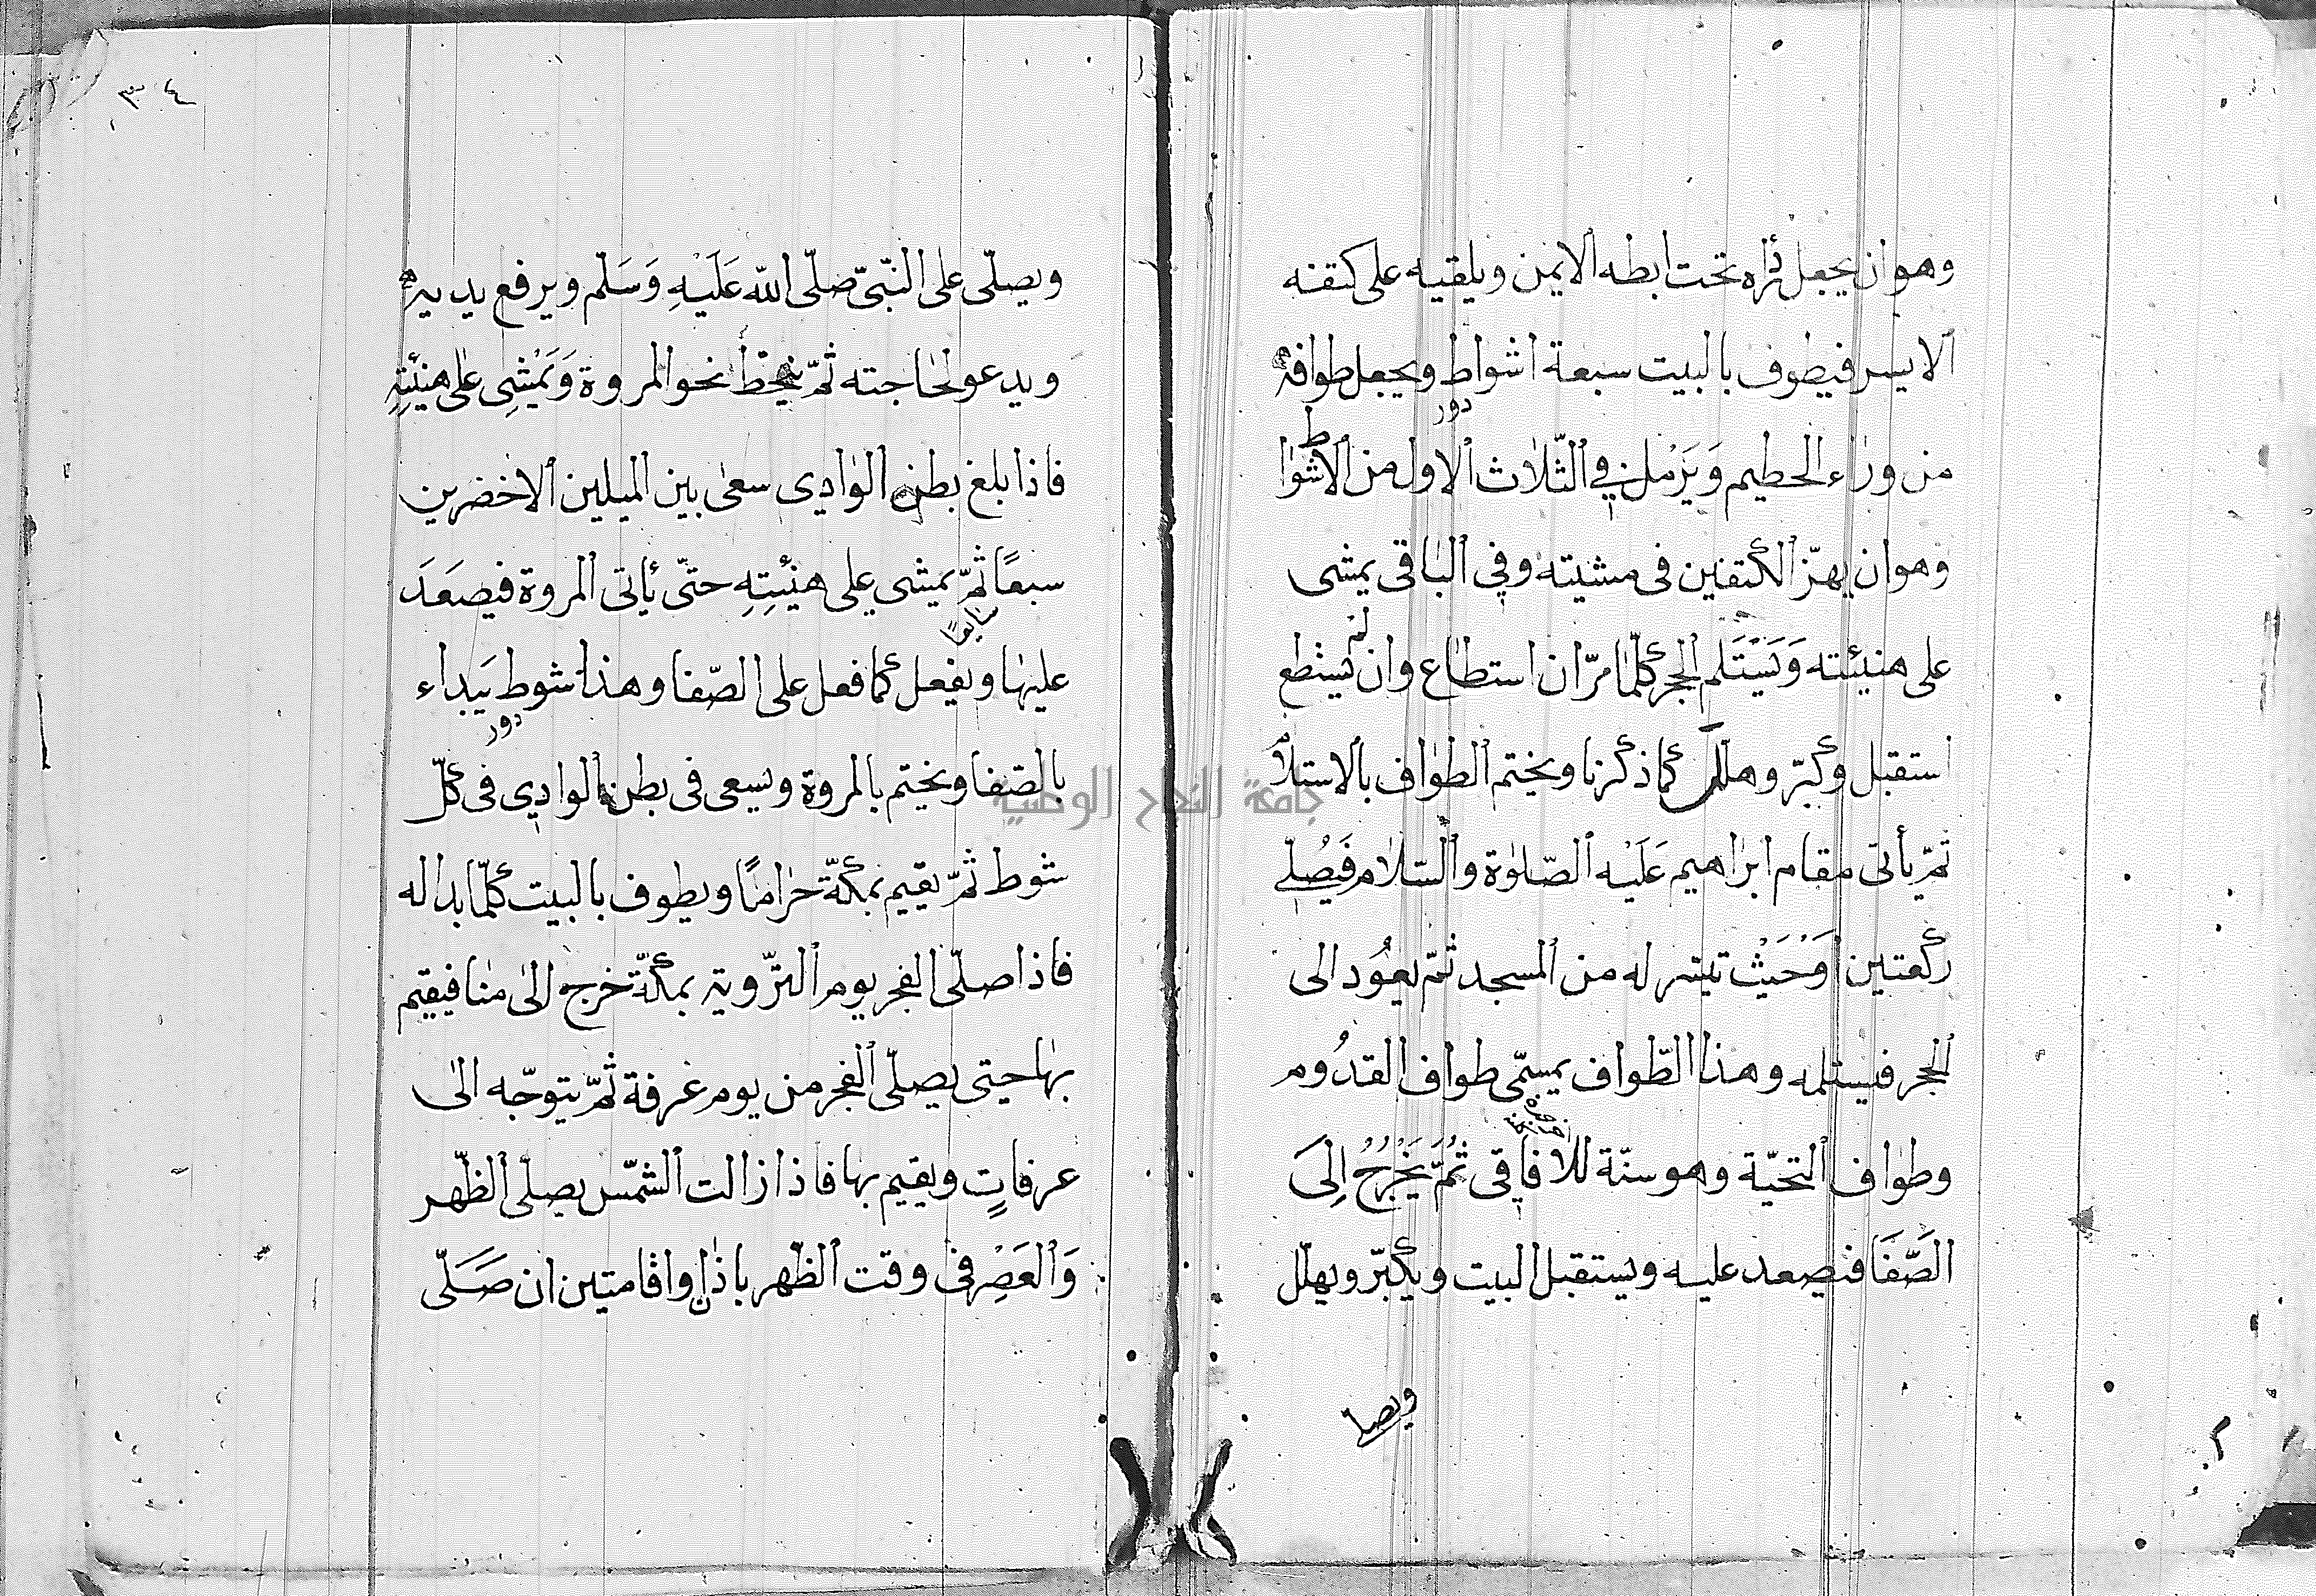 وهو ان يجعل رداءه تحت ابطه الايمن ويلقيه على كتفه
الايسر فيطوف بالبيت سبعة اشواط ويجعل طوافه
دور
من وراء الحطيم وَيَرْمل في الثّلاث الاول من الاشواط
وهو ان يهزّ الكتفين فى مشيته وفي الباقى يمشى
على هنيئته وَيَسْتَلم الحجر كلّما مرّ ان استطاع وان لم يستطع
استقبل وكبّر وهلّل كما ذكرنا ويختم الطواف بالاستلام
ثمّ يأتى مقام ابراهيم عَلَيْه الصّلوة والسّلام فَيُصلّي
ركعتين اَوْحَيْثُ تيسّر له من المسجد ثمّ يعُود الى
الحجر فيستلمه وهذا الطّواف يسمّى طواف القدُوم
وطواف التحيّة وهو سنّة للآفاقى ثُمَّ يَخْرُجُ اِلىَ
الصَّفَا فيصعد عليه ويستقبل البيت ويكبّر ويهلّل
ويصلى
٣٤
ويصلّى على النّبىّ صلّى اللّه عَلَيْهِ وَسَلّم ويرفع يديه
ويدعو لحاجته ثمّ ينحطّ نحو المروة وَيَمْشِى على هنيئتِهِ
فاذا بلغ بطن الوادي سعى بين الميلين الاخضرين
سبعًا ثمّ يمشى على هنيئتِهِ حتّى يأتى المروة فيصعَدَ
عليها ويفعل كما فعل على الصّفا وهذا شوط يَبداء
دور
بالصّفا ويختم بالمروة ويسعى فى بطن الوادي فى كلّ
شوط ثمّ يقيم بمكّة حرامًا ويطوف بالبيت كلّما بدا له
فاذا صلّى الفجر يوم التّروية بمكّة خرج الى منا فيقيم
بها حتى يصلّى الفجر من يوم عرفة ثمّ يتوجّه الى
عرفاتٍ ويقيم بها فاذا زالت الشّمس يصلّى الظّهر
وَالعَصْرِ فى وقت الظّهر باذان واقامتين ان صَلّى
جامعة النجاح الوطنية